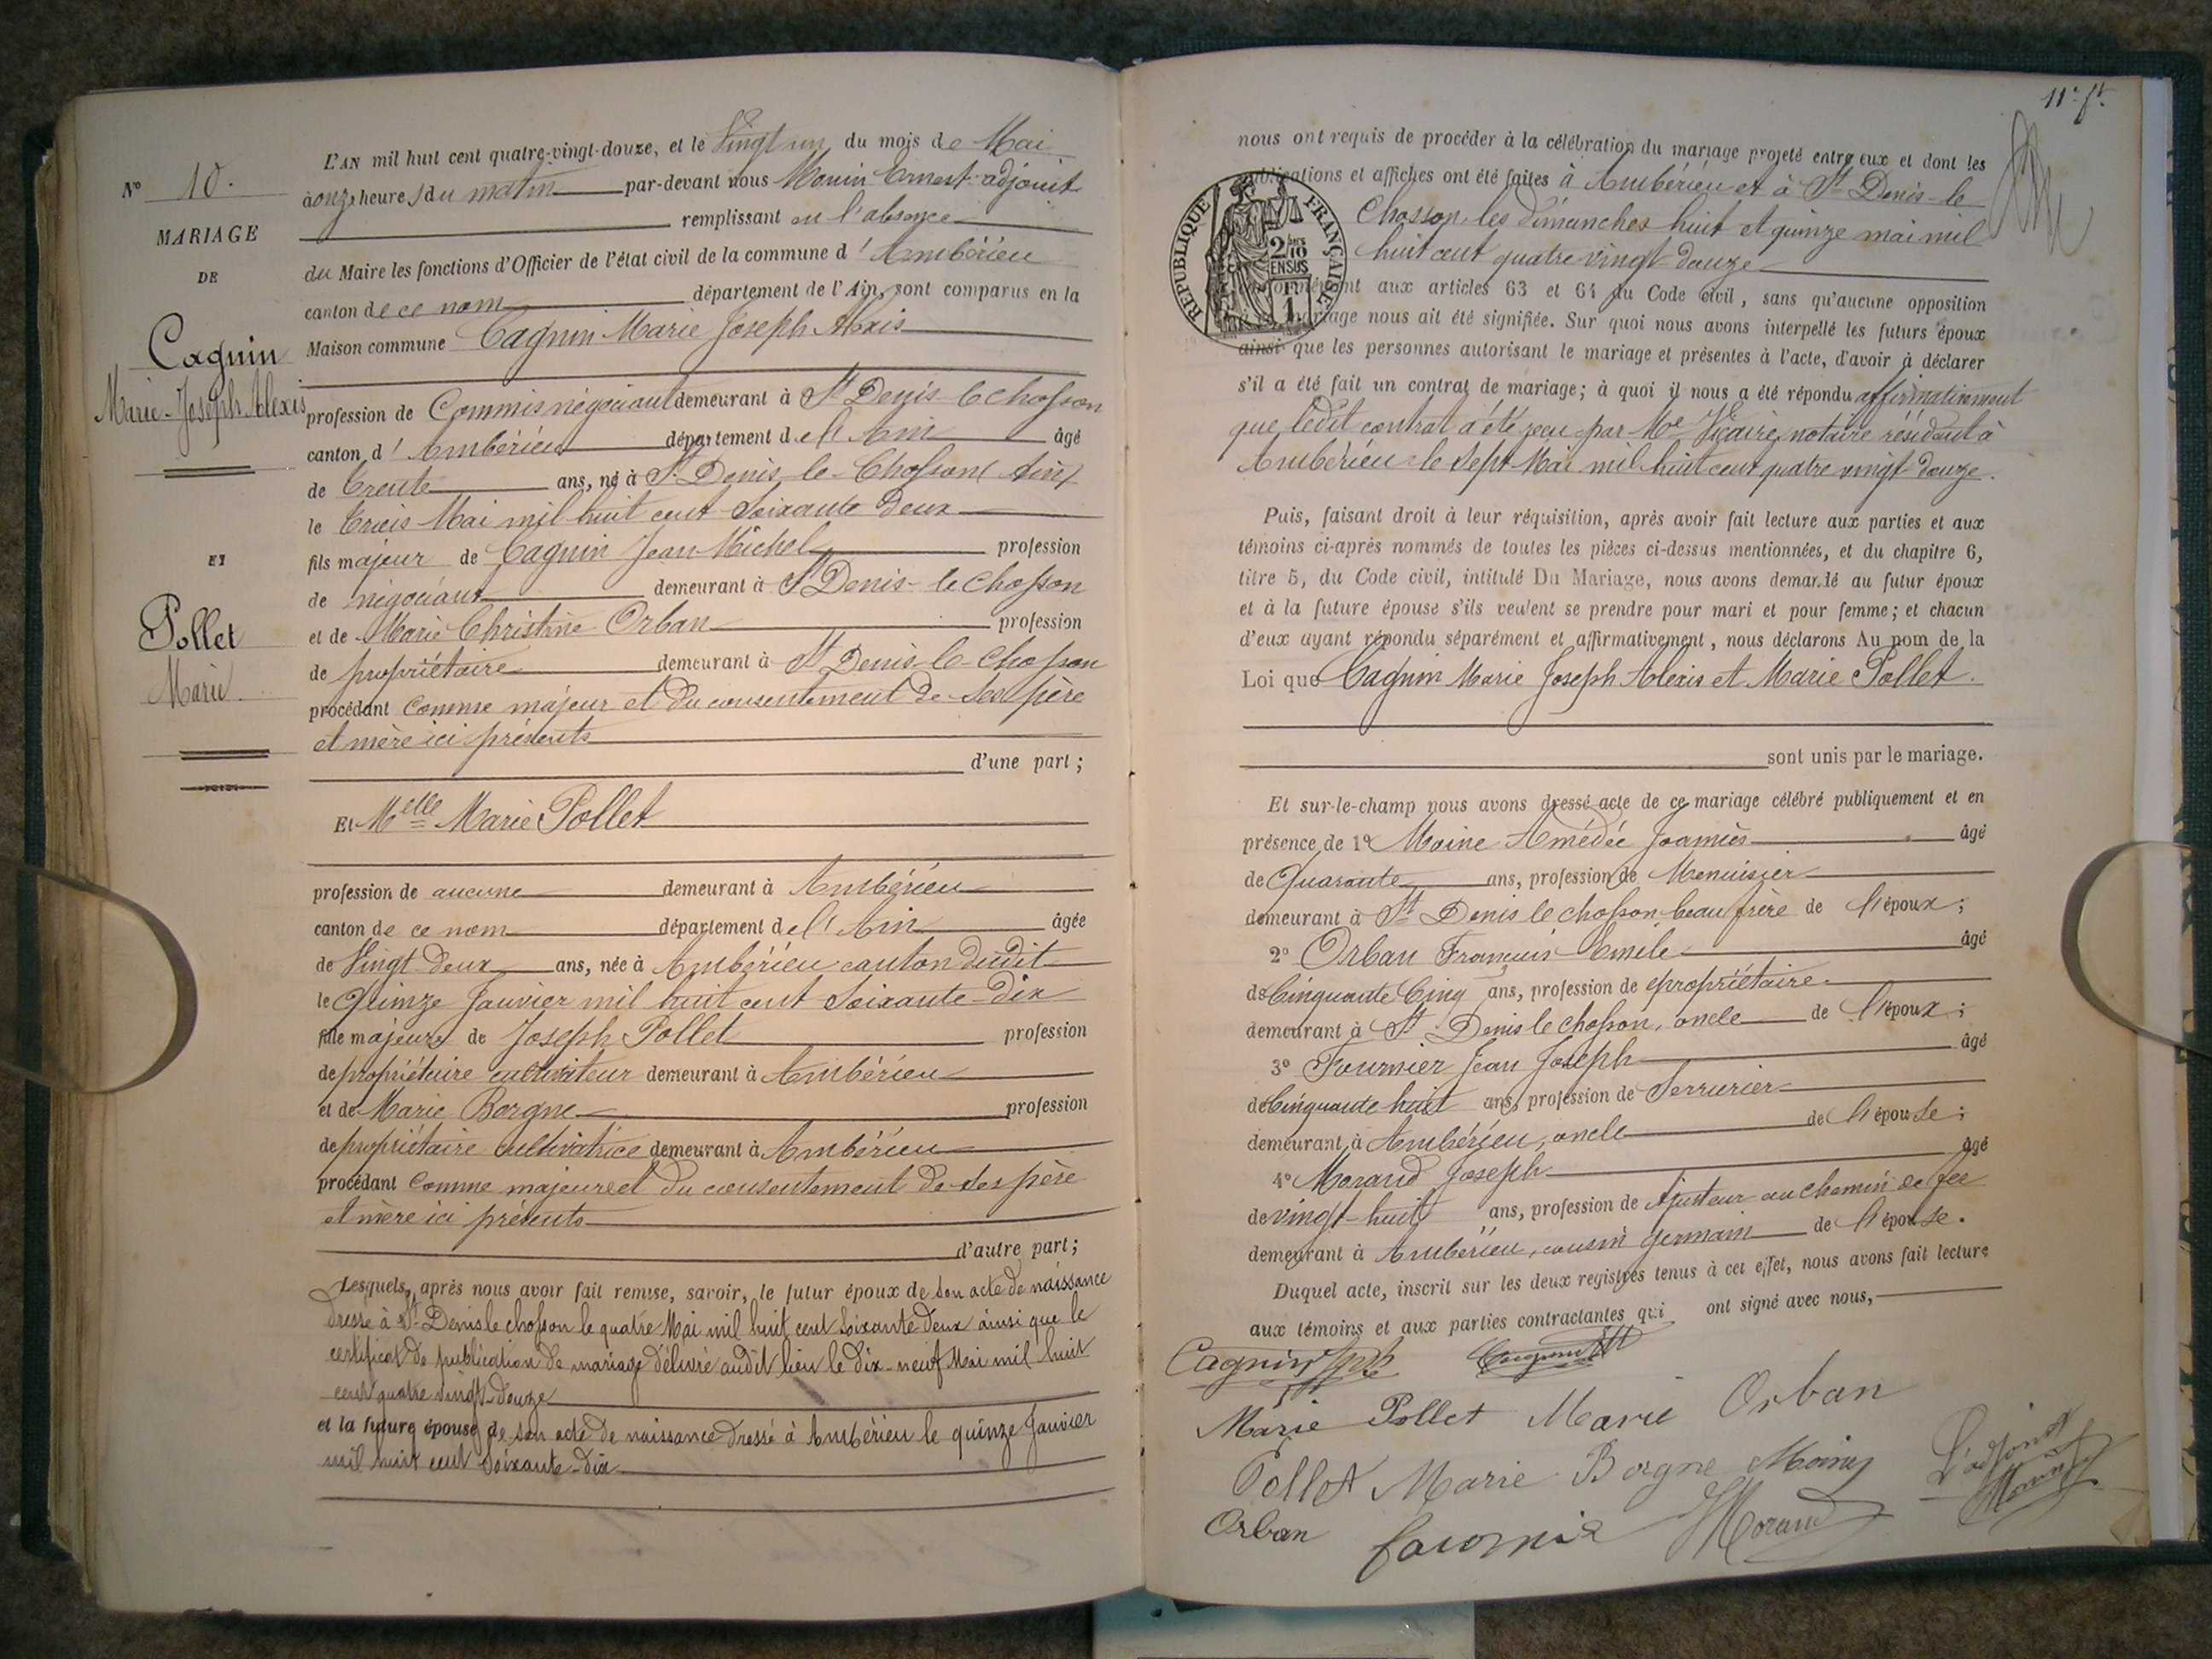 N° 10.
MARIAGE
DE
Cagnin
Marie-Joseph Alexis
ET
Pollet
Marie
L'AN mil huit cent quatre-vingt-douze, et le Vingt un du mois de Mai
à onze heures du matin par-devant nous Monin Ernest adjoint
remplissant en l'absence
du Maire les fonctions d'Officier de l'état civil de la commune d'Ambérieu
canton de ce nom département de l'Ain, sont comparus en la
Maison commune Cagnin Marie Joseph Alexis
profession de Commis négociant demeurant à St Denis-le chosson
canton d'Ambérieu département de l'Ain âgé
de trente ans, né à St Denis-le-Chosson (Ain)
le trois Mai mil huit cent soixante deux
fils majeur de Cagnin Jean Michel profession
de négociant demeurant à St Denis-le Chosson
et de Marie Christine Orban profession
de propriétaire demeurant à St Denis-le-chosson
procédant comme majeur et du consentement de ses père
et mère ici présents
d'une part;
Et Melle Marie Pollet
profession de aucune demeurant à Ambérieu
canton de ce nom département de l'Ain âgée
de Vingt-deux ans, née à Ambérieu canton dudit
le Quinze Janvier mil huit cent soixante-dix
fille majeure de Joseph Pollet profession
de propriétaire cultivateur demeurant à Ambérieu
et de Marie Borgne profession
de propriétaire cultivatrice demeurant à Ambérieu
procédant comme majeure et du consentement de ses père
et mère ici présents
d'autre part;
Lesquels, après nous avoir fait remise, savoir, le futur époux de son acte de naissance
dressé à St Denis le chosson le quatre Mai mil huit cent soixante deux ainsi que le
certificat de publication de mariage délivré audit lieu le dix-neuf Mai mil huit
cent quatre vingt-douze
et la future épouse de son acte de naissance dressé à Ambérieu le quinze Janvier
mil huit cent soixante-dix
11e ft.
nous ont requis de procéder à la célébration du mariage projeté entre eux et dont les
publications et affiches ont été faites à Ambérieu et à St Denis-le
Chosson, les dimanches huit et quinze mai mil
huit cent quatre vingt douze
REPUBLIQUE FRANÇAISE
2/10
EN SUS
1F
conformément aux articles 63 et 64 du Code civil, sans qu'aucune opposition
mariage nous ait été signifiée. Sur quoi nous avons interpellé les futurs époux
ainsi que les personnes autorisant le mariage et présentes à l'acte, d'avoir à déclarer
s'il a été fait un contrat de mariage; à quoi il nous a été répondu affirmativement
que ledit contrat a été reçu par Me Vicaire, notaire résidant à
Ambérieu le sept Mai mil huit cent quatre vingt douze.
Puis, faisant droit à leur réquisition, après avoir fait lecture aux parties et aux
témoins ci-après nommés de toutes les pièces ci-dessus mentionnées, et du chapitre 6,
titre 5, du Code civil, intitulé Du Mariage, nous avons demandé au futur époux
et à la future épouse s'ils veulent se prendre pour mari et pour femme; et chacun
d'eux ayant répondu séparément et affirmativement, nous déclarons Au nom de la
Loi que Cagnin Marie Joseph Alexis et Marie Pollet.
sont unis par le mariage.
Et sur-le-champ nous avons dressé acte de ce mariage célébré publiquement et en
présence de 1° Moine Amédée Joanniès âgé
de Quarante ans, profession de Menuisier
demeurant à St Denis le chosson, beau frère de l'époux;
2° Orban François Emile âgé
de Cinquante Cinq ans, profession de propriétaire
demeurant à St Denis le chosson, oncle de l'époux;
3° Fournier Jean Joseph âgé
de Cinquante huit ans, profession de Serrurier
demeurant à Ambérieu, oncle de l'épouse;
4° Morand Joseph âgé
de vingt-huit ans, profession de Ajusteur au chemin de fer
demeurant à Ambérieu, cousin germain de l'épouse.
Duquel acte, inscrit sur les deux registres tenus à cet effet, nous avons fait lecture
aux témoins et aux parties contractantes qui ont signé avec nous,
Cagnin Jph
Marie Pollet Marie Orban
Pollet Marie Borgne Moine L'adjoint
Monin
Orban fournie JMorand